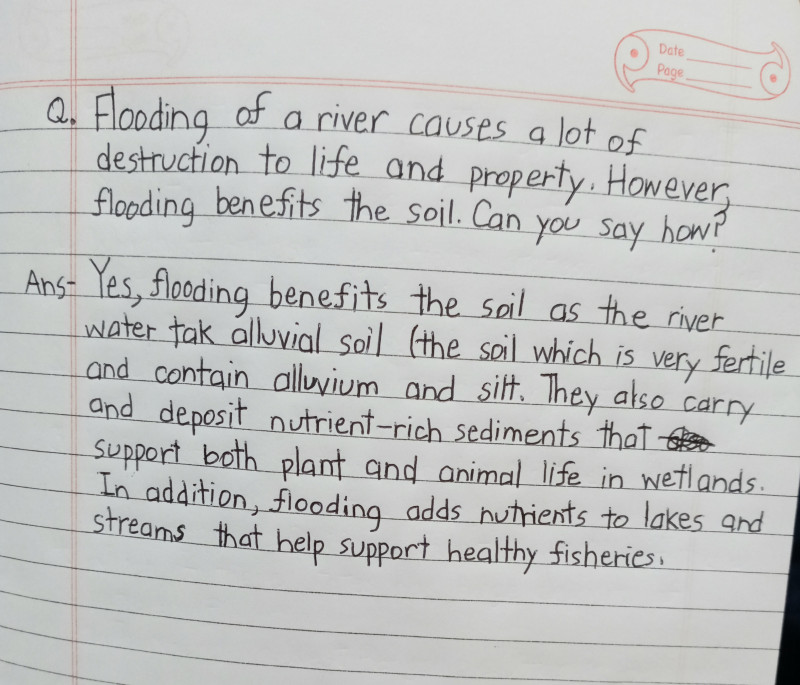 Date
Page
Q. Flooding of a river causes a lot of
destruction to life and property. However,
flooding benefits the soil. Can you say how?
Ans- Yes, flooding benefits the soil as the river
water tak alluvial soil (the soil which is very fertile
and contain alluvium and silt. They also carry
and deposit nutrient-rich sediments that
support both plant and animal life in wetlands.
In addition, flooding adds nutrients to lakes and
streams that help support healthy fisheries.